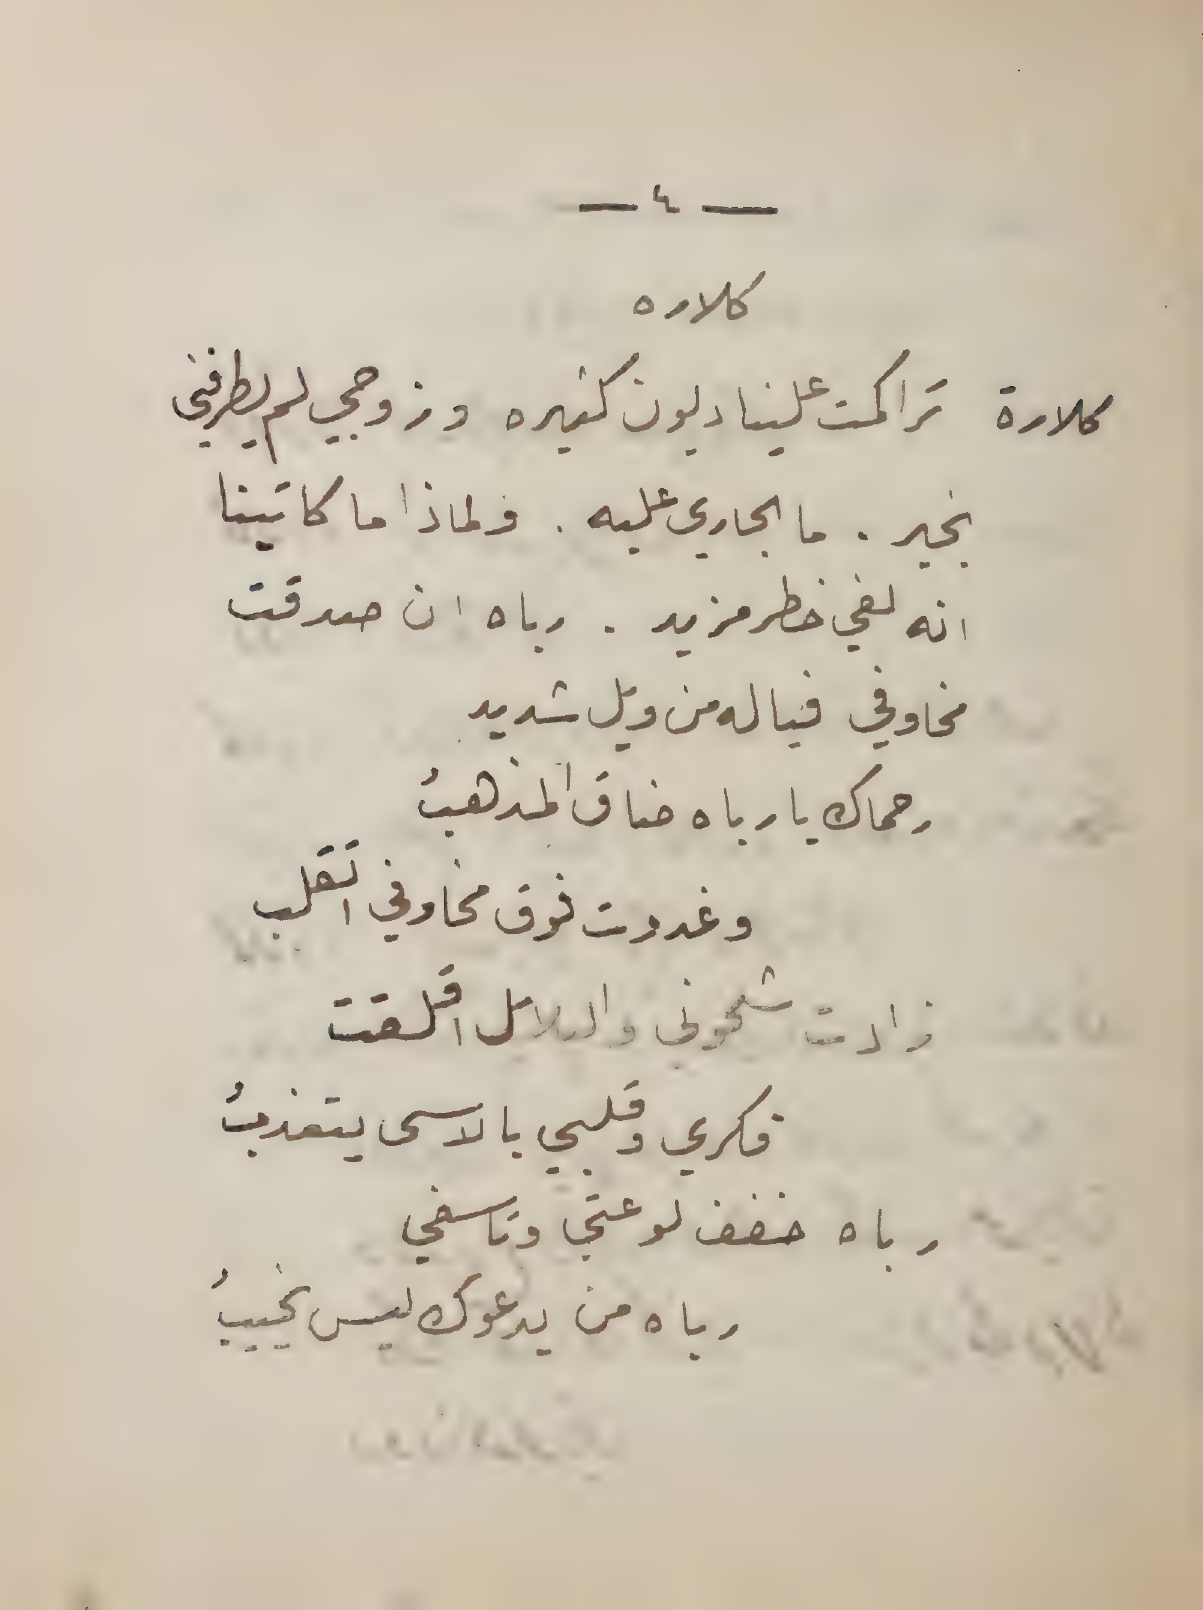 — ٤ —
كلاره
كلارة تراكمت علينا ديون كثيره وزوجي لم يطرفني
بخير . ما الجاري عليه . فلماذا ما كاتبنا
انه لفي خطر مزيد . رباه ان صدقت
مخاوفي فياله من ويل شديد
رحماك يا رباه ضاق المذهبُ
وغدوت فوق مخاوفي اتقلب
زادت شجوني والبلابل اقلقت
فكري وقلبي بالاسى يتعذبُ
رباه خفف لوعتي وتاسفي
رباه من يدعوك ليس يخيبُ